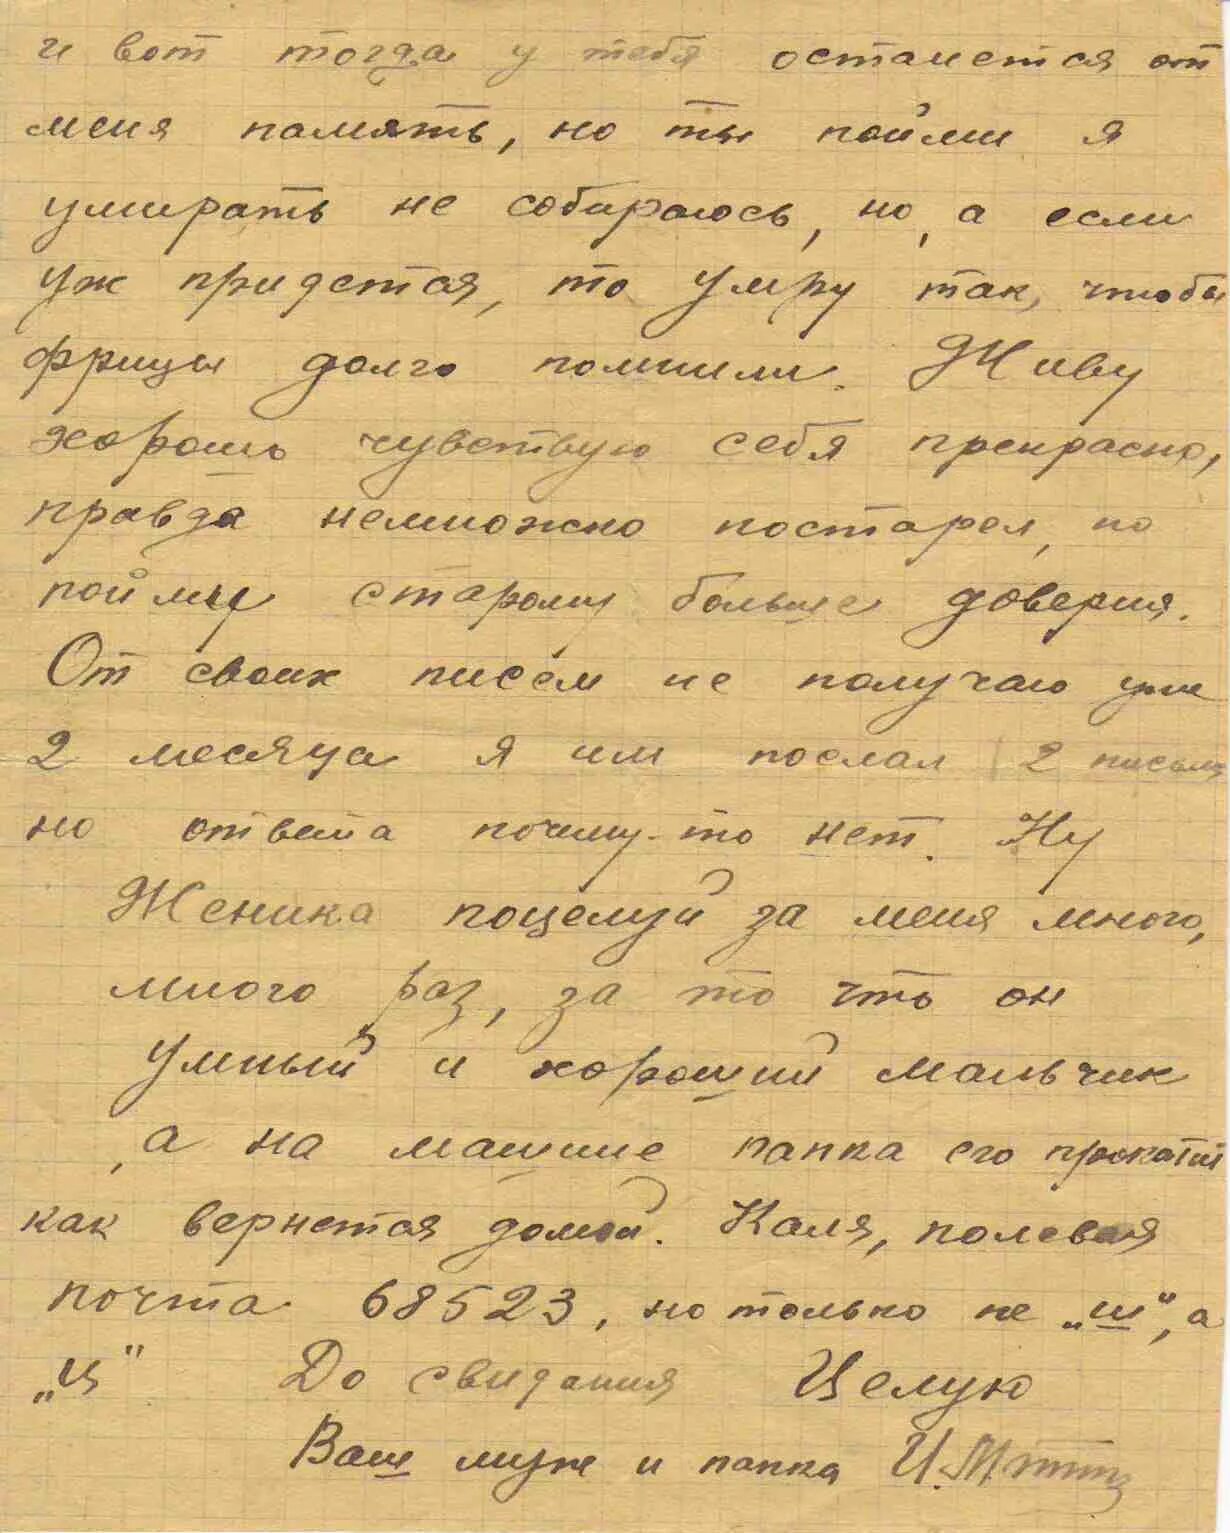 и вот тогда у тебя останется от
меня память, но ты пойми я
умирать не собираюсь, но, а если
уж придется, то умру так, чтобы
фрицы долго помнили. Живу
хорошо чувствую себя прекрасно,
правда немножко постарел, но
пойми старому больше доверия.
От своих писем не получаю уже
2 месяца я им послал 2 письма
но ответа почему-то нет. Ну
Женика поцелуй за меня много,
много раз, за то что он
умный и хороший мальчик
, а на машине папка его прокатит
как вернется домой. Каля, полевая
почта 68523, но только не „ш", а
„ц" До свидания Целую
Ваш муж и папка И.